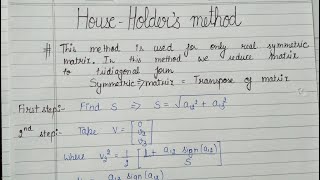 House-Holder's method
# This method is used for only real symmetric
matrix. In this method we reduce matrix
to tridiagonal form
Symmetric ⇒ matrix = Transpose of matrix
First step:- Find S ⇒ S = √a₁₂² + a₁₃²
2nd step:- Take V = [0 v₂ v₃]
where v₂² = 1/2 [1 + a₁₂ sign(a₁₂) / S]
a₁₃ sign(a₁₂)